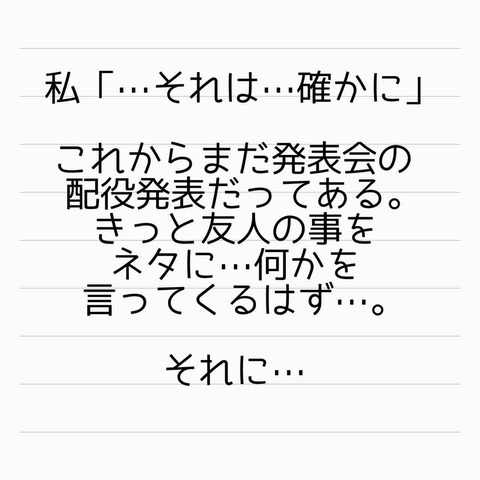 私「…それは…確かに」
これからまだ発表会の
配役発表だってある。
きっと友人の事を
ネタに…何かを
言ってくるはず…。
それに…